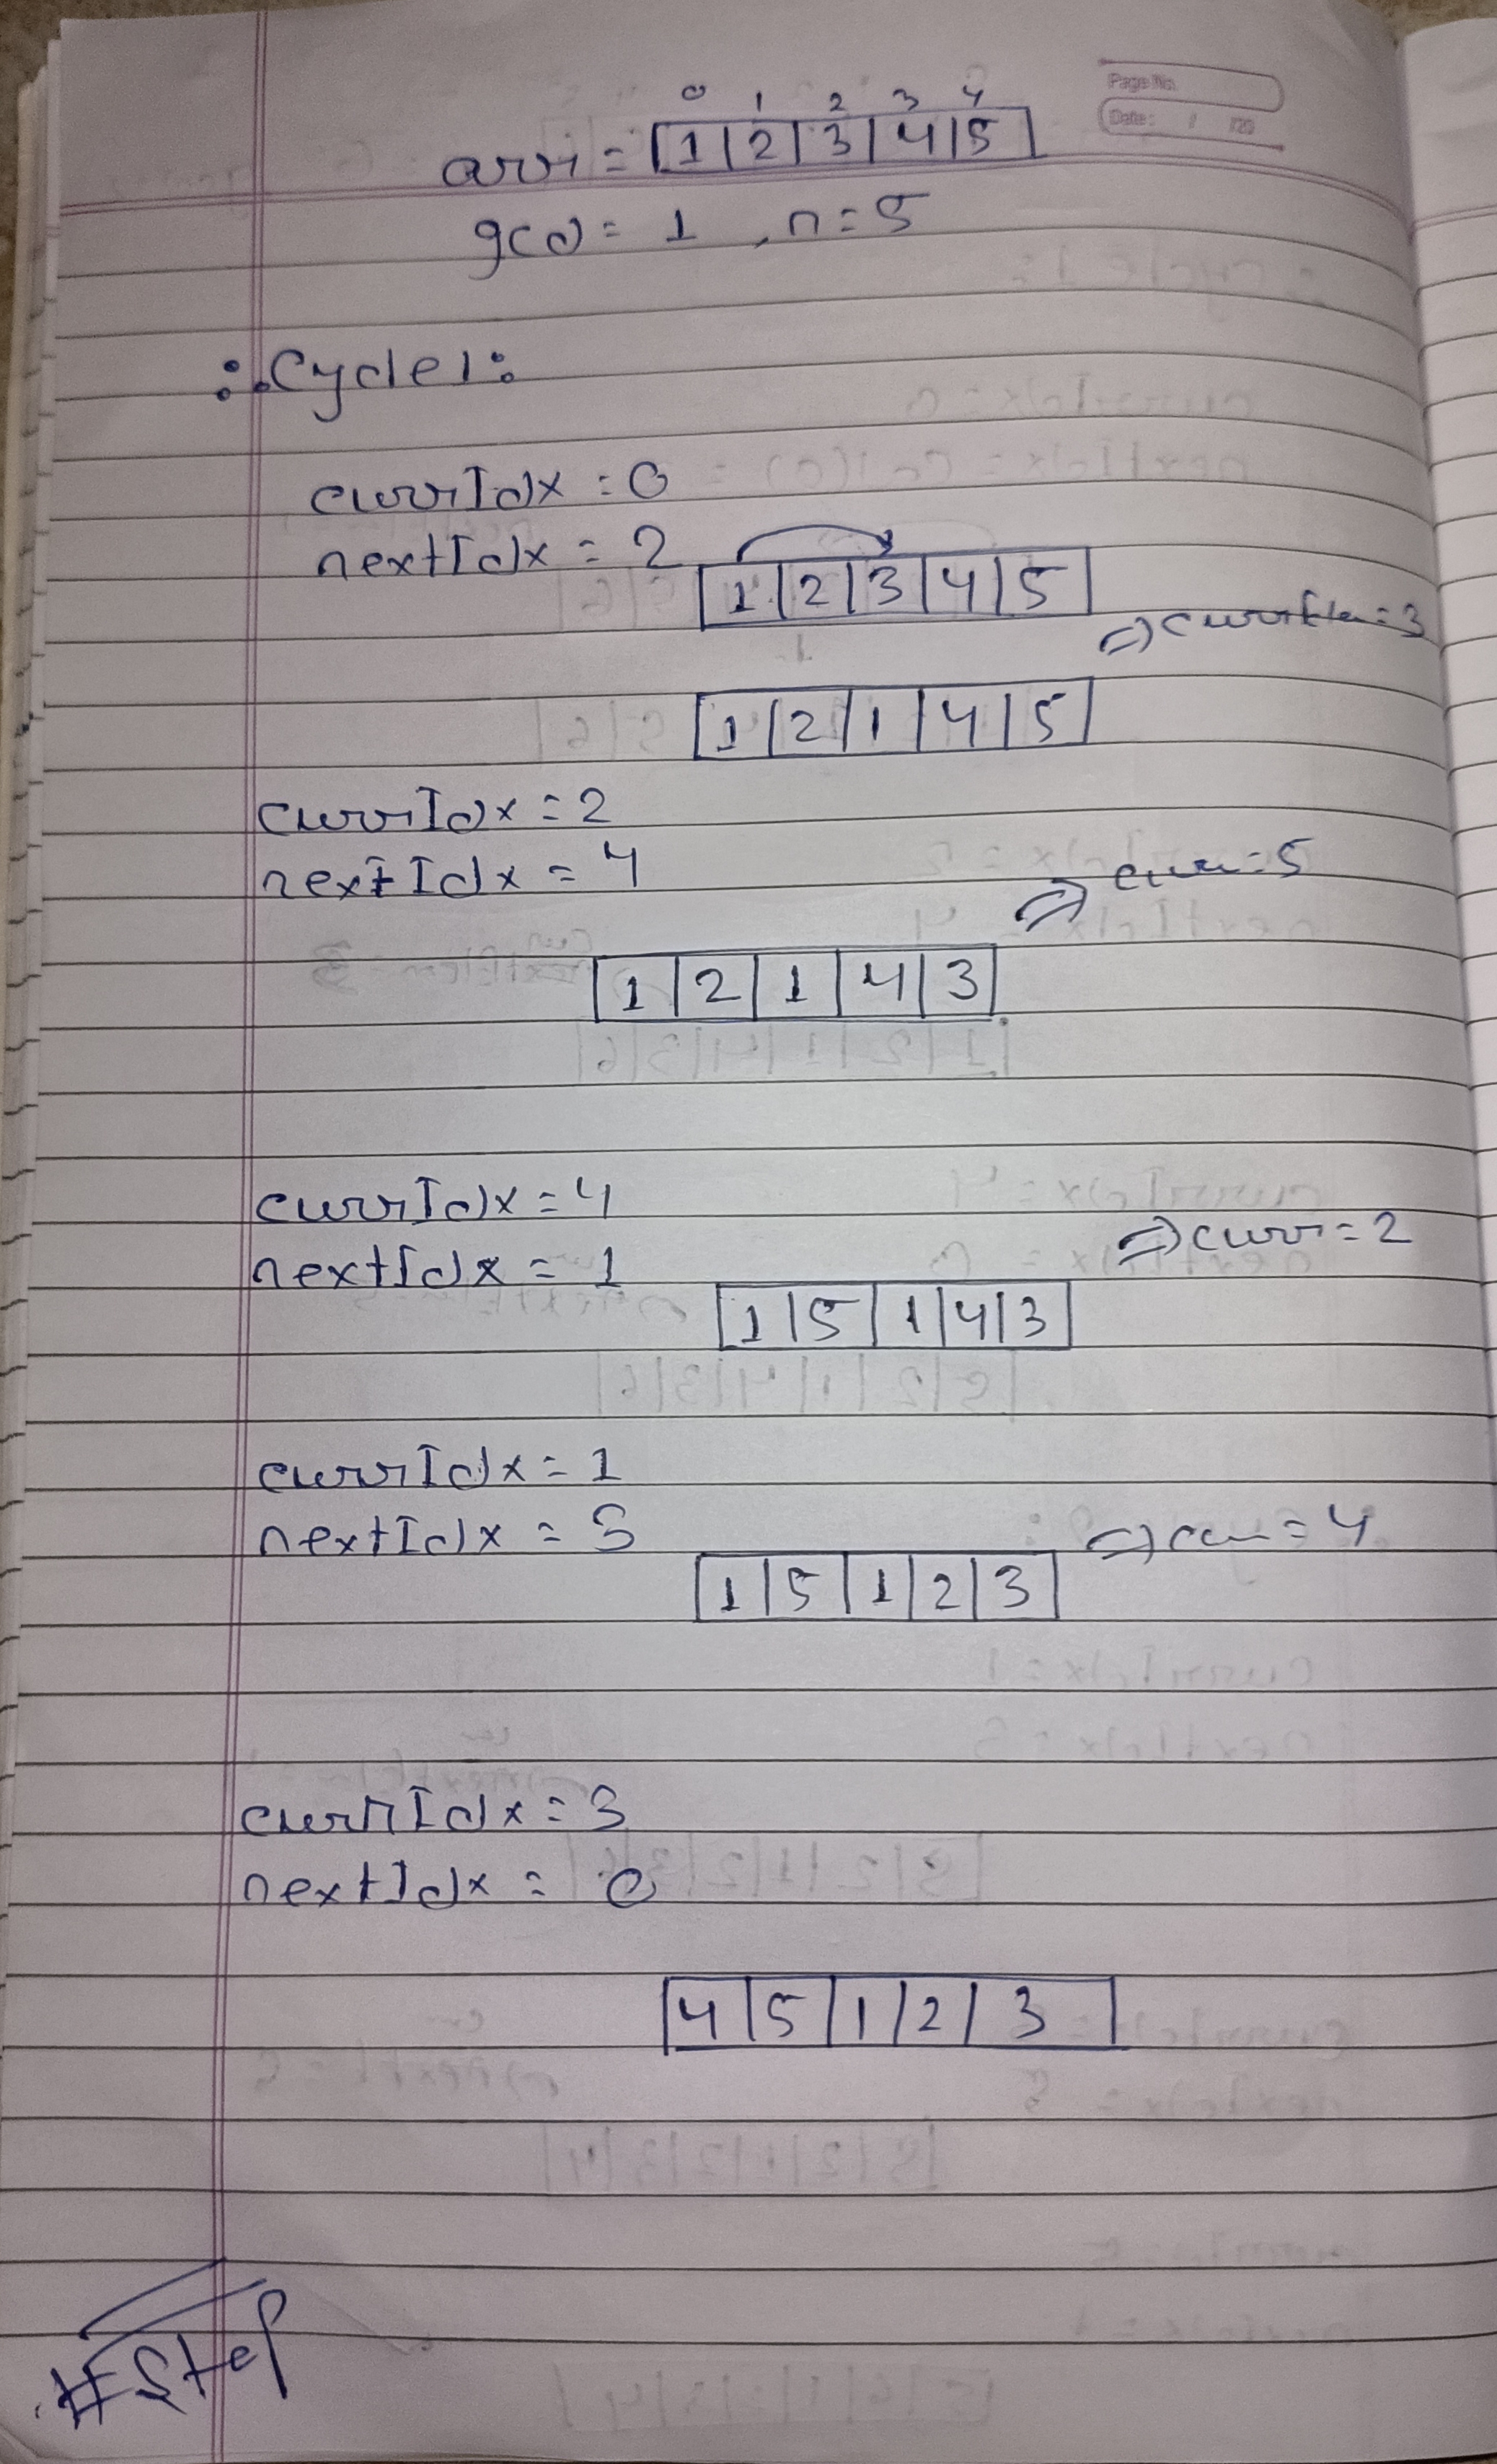 Page No.
Date: / /20
0 1 2 3 4
arr = [1|2|3|4|5]
gcd = 1 , n=5
∴ Cycle 1:
currIdx = 0
nextIdx = 2
[1|2|3|4|5]
⇒ currEle = 3
[1|2|1|4|5]
currIdx = 2
nextIdx = 4
⇒ curr = 5
[1|2|1|4|3]
currIdx = 4
nextIdx = 1
⇒ curr = 2
[1|5|1|4|3]
currIdx = 1
nextIdx = 3
⇒ curr = 4
[1|5|1|2|3]
currIdx = 3
nextIdx = 0
[4|5|1|2|3]
#Step